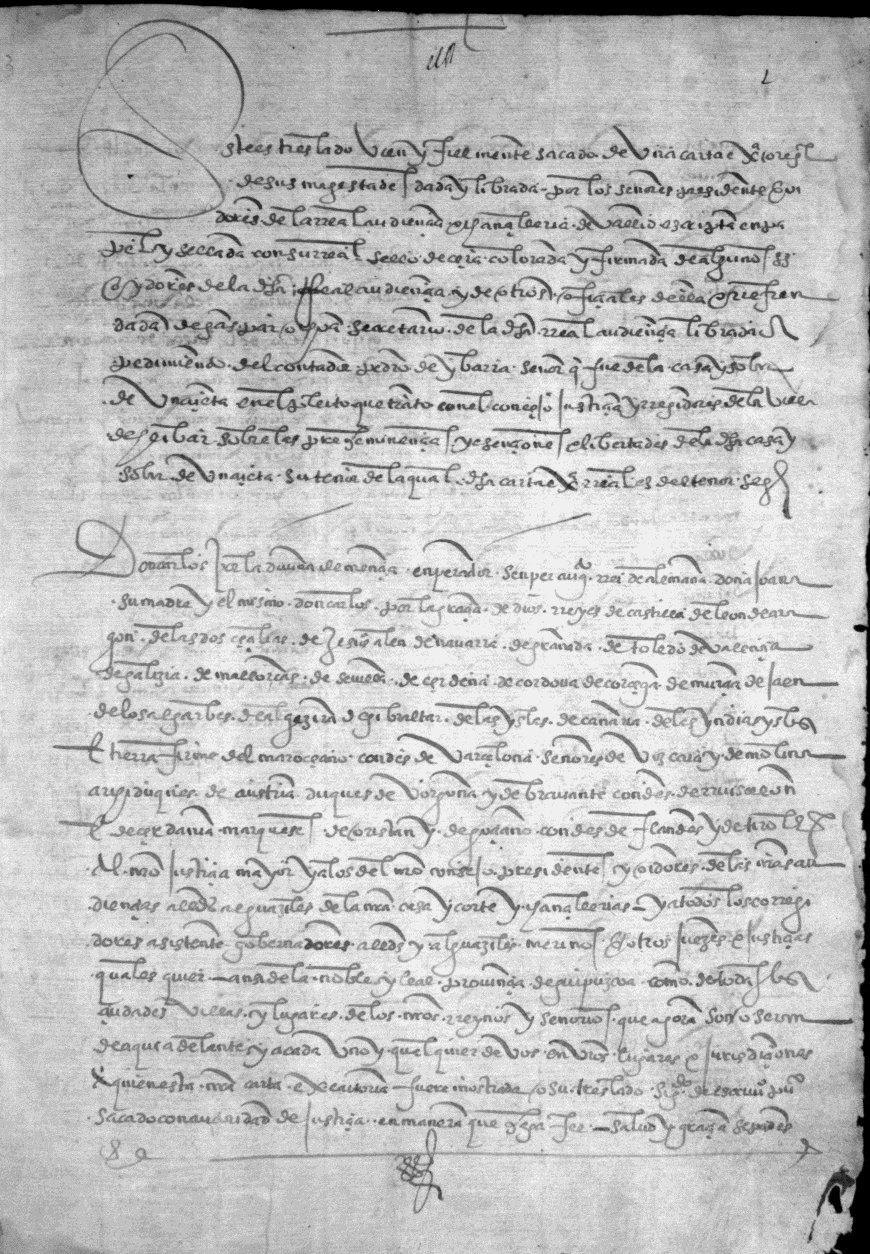 Este es treslado vien y fielmente sacado de vna carta exetorial
de sus magestades dada y librada por los señores presidente e oy
dores de la rreal audiençia e chançelleria de vallid escripta en pa
pel y sellada con su rreal sello de çera colorada y firmada de algunos ss
oydores de la dha rreal audiençia y de otros ofiçiales della e rrefren
dada de gaspar secretario de la dha rreal audiençia librada a
pedimiento del contador pedro de ybarra señor q fue de la casa y solar
de vnçueta en el pleito que trato con el conçejo justiçia y rregidores de la villa
de eibar sobre las preheminençias y esençiones e libertades de la dha casa y
solar de vnçueta su tenor de la qual dha carta ex rreal es del tenor segte
Don carlos por la divina clemençia enperador senper augto rrei de alemana doña joana
su madre y el mismo don carlos por la graçia de dios rreyes de castilla de leon de ara
gon de las dos çeçilias de jerusalen de navarra de granada de toledo de valençia
de galizia de mallorcas de sevilla de çerdeña de cordova de corçega de murçia de jaen
de los algarbes de algezira de gibraltar de las yslas de canaria de las yndias yslas
e tierra firme del mar oçeano condes de varçelona señores de vizcaia y de molina
archiduques de austria duques de vorgoña y de bravante condes de rruisellon
e de çerdania marqueses de oristan y de goçiano condes de flandes y de tirol &
Al nro justiçia mayor y a los del nro consejo presidentes y oidores de las nras au
diençias alldes alguaziles de la nra casa y corte y chançellerias y a todos los corregi
dores asistente gobernadores alldes y alguaziles merinos e otros juezes e justiçias
quales quier ansi de la noble y leal provinçia de guipuzcoa como de todas las
çiudades villas y lugares de los nros rreynos y señorios que agora son o seran
de aqui adelante y a cada vno y qualquier de vos en vros lugares e jurisdiçiones
a quien esta nra carta executoria fuere mostrada o su treslado sigdo de escriuo puco
sacado con avtoridad de justiçia en manera que haga fee salud y graçia sepades